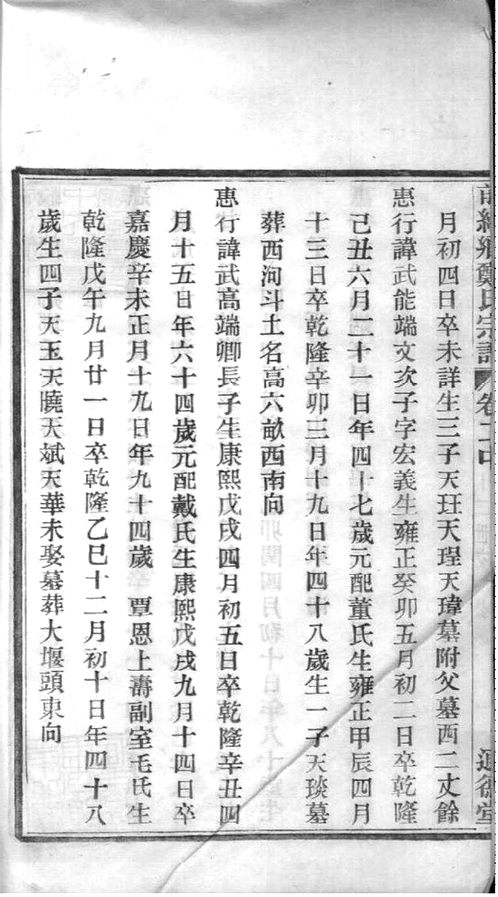 鄭氏宗譜 卷二中
月初四日卒未詳生三子天玨天珵天瑋墓附父墓西二丈餘
惠行諱武能端文次子字宏義生雍正癸卯五月初二日卒乾隆
己丑六月二十一日年四十七歲元配董氏生雍正甲辰四月
十三日卒乾隆辛卯三月十九日年四十八歲生一子天琰墓
葬西洵斗土名高六畝西南向
惠行諱武高端卿長子生康熙戊戌四月初五日卒乾隆辛丑四
月十五日年六十四歲元配戴氏生康熙戊戌九月十四日卒
嘉慶辛未正月十九日年九十四歲 覃恩上壽副室毛氏生
乾隆戊午九月廿一日卒乾隆乙巳十二月初十日年四十八
歲生四子天玉天曉天斌天華未娶墓葬大堰頭東向